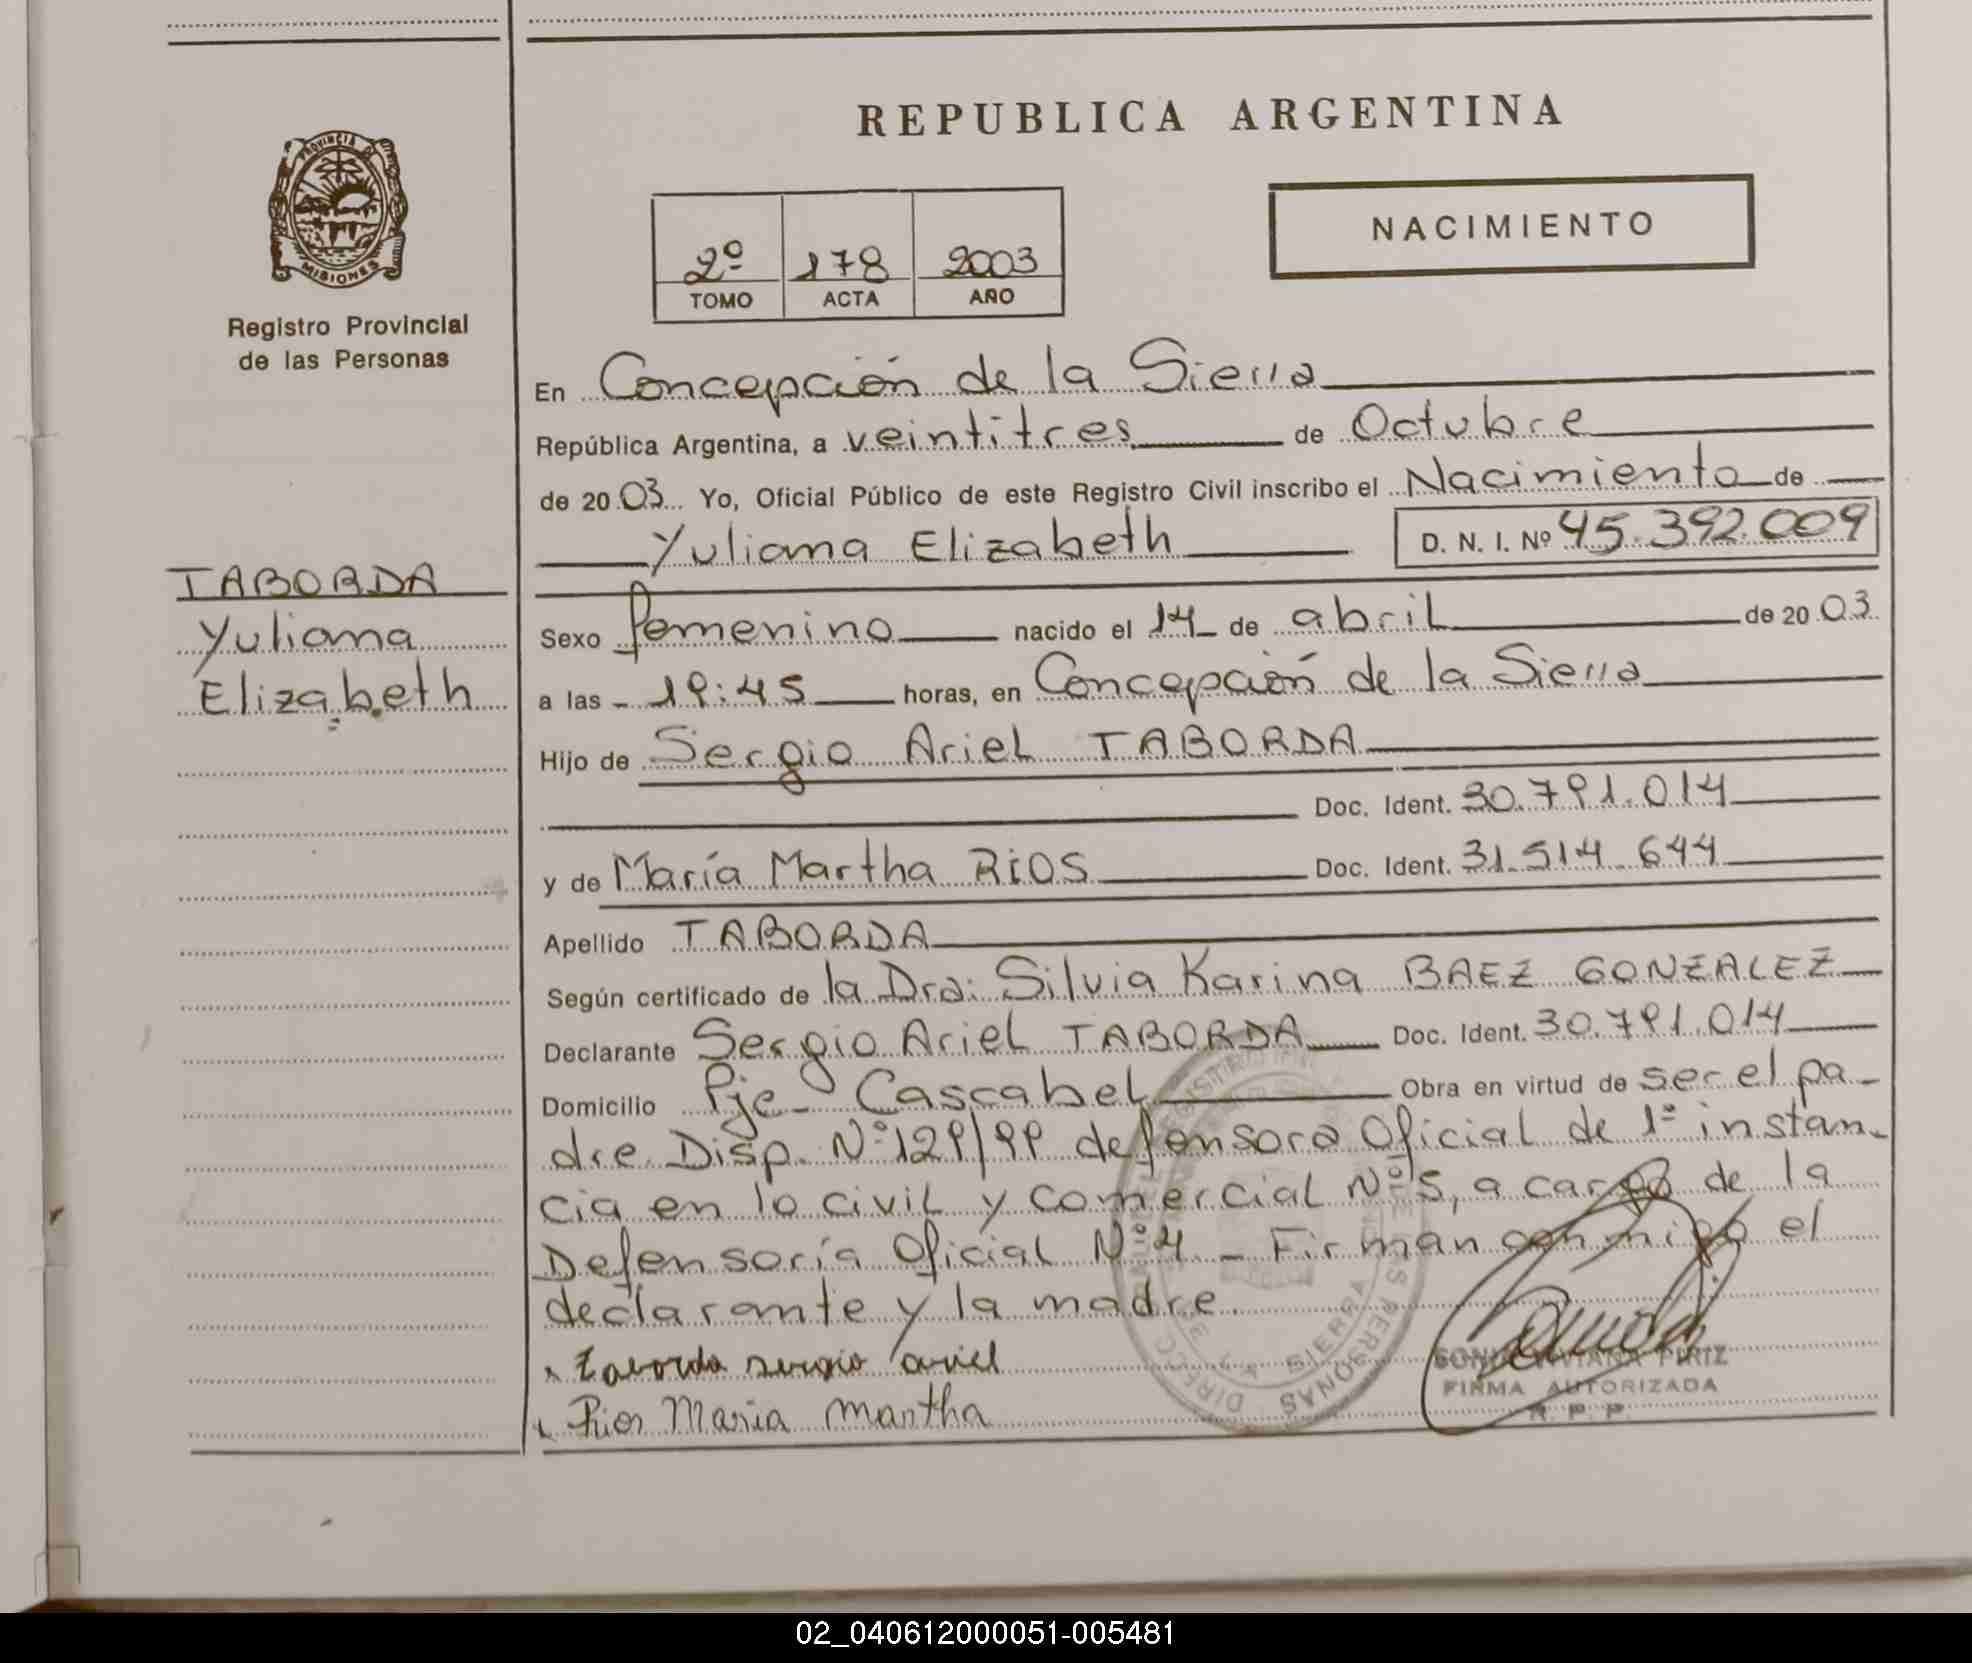 REPUBLICA ARGENTINA
PROVINCIA DE MISIONES
Registro Provincial
de las Personas
2º 178 2003
TOMO ACTA AÑO
NACIMIENTO
En Concepción de la Sierra
República Argentina, a veintitres de Octubre
de 2003 Yo, Oficial Público de este Registro Civil inscribo el Nacimiento de
Yuliana Elizabeth D. N. I. Nº 45.392.009
TABORDA
Yuliana
Elizabeth
Sexo femenino nacido el 14 de abril de 2003
a las 19:45 horas, en Concepción de la Sierra
Hijo de Sergio Ariel TABORDA
Doc. Ident. 30.791.014
y de María Martha RIOS Doc. Ident. 31.514.644
Apellido TABORDA
Según certificado de la Dra: Silvia Karina BAEZ GONZALEZ
Declarante Sergio Ariel TABORDA Doc. Ident. 30.791.014
Domicilio Pje Cascabel Obra en virtud de ser el pa-
dre. Disp. Nº 129/99 defensora Oficial de 1º instan-
cia en lo civil y comercial Nº 5, a cargo de la
Defensoría Oficial Nº 4 - Firman conmigo el
declarante y la madre.
Taborda sergio ariel
Rios Maria Martha
SONIA VIVIANA PIRIZ
FIRMA AUTORIZADA
R. P. P.
SIERRA
PERSONAS
02_040612000051-005481